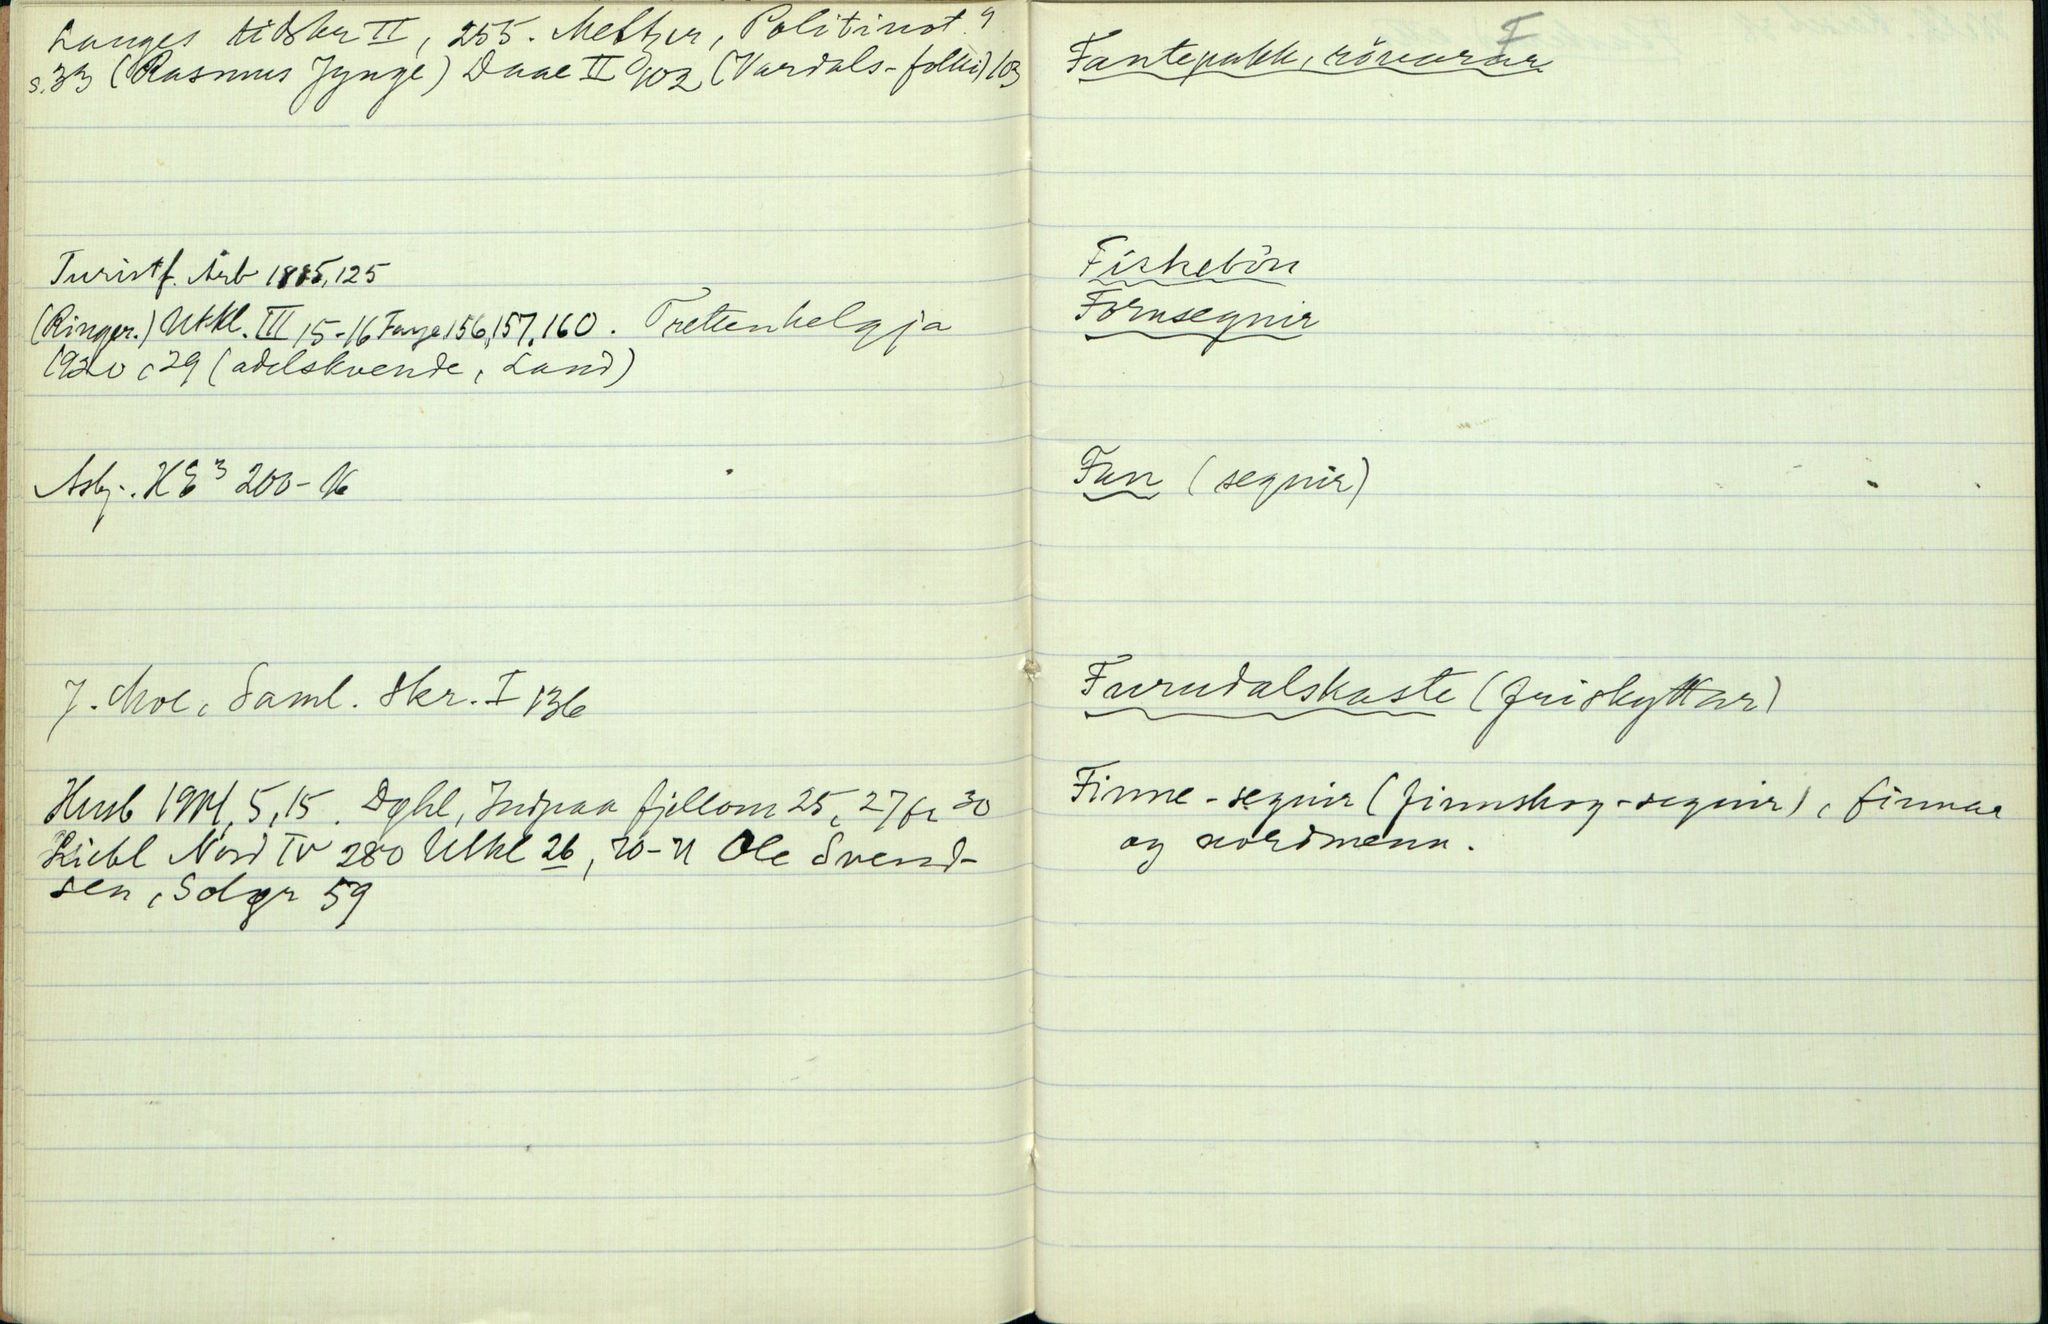 Langes tidskr II, 255. Meltzer, Politinot. 9
s. 33 (Rasmus Jynge) Daae II 102 (Vardals-folki) 103
Turistf. Årb 1885, 125
(Ringer.) Utkl. III 15-16 Faye 156, 157, 160. Trettenhelgja
1920, 29 (adelskvende, Land)
Asbj. HE³ 200-
J. Moe, Saml. Skr. I 136
Husb 5, 15. Dghl, Indpaa fjellom 25, 27 30
Nord IV 280 Utkl 26, 70-71 Ole Svend-
sen, Solgr 59
F
Fantepakk, rövarar
Fiskebön
Fornsegnir
Fan (segnir)
Furudalskaste (friskyttar)
Finne-segnir (finnskog-segnir), finnar
og nordmenn.